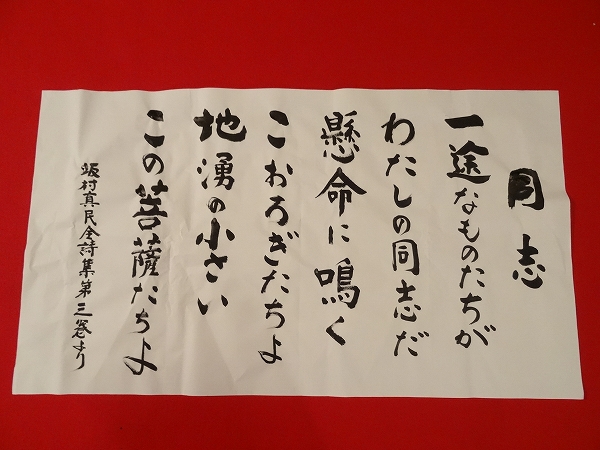 同志
一途なものたちが
わたしの同志だ
懸命に鳴く
こおろぎたちよ
地湧の小さい
この菩薩たちよ
坂村真民全詩集第三巻より